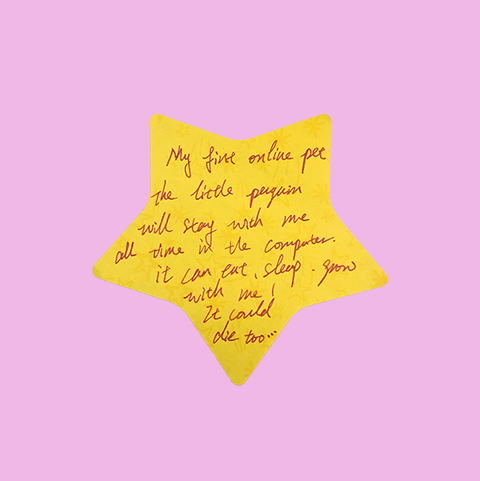 My first online pet
the little penguin
will stay with me
all time in the computer.
it can eat, sleep. grow
with me!
It could
die too...